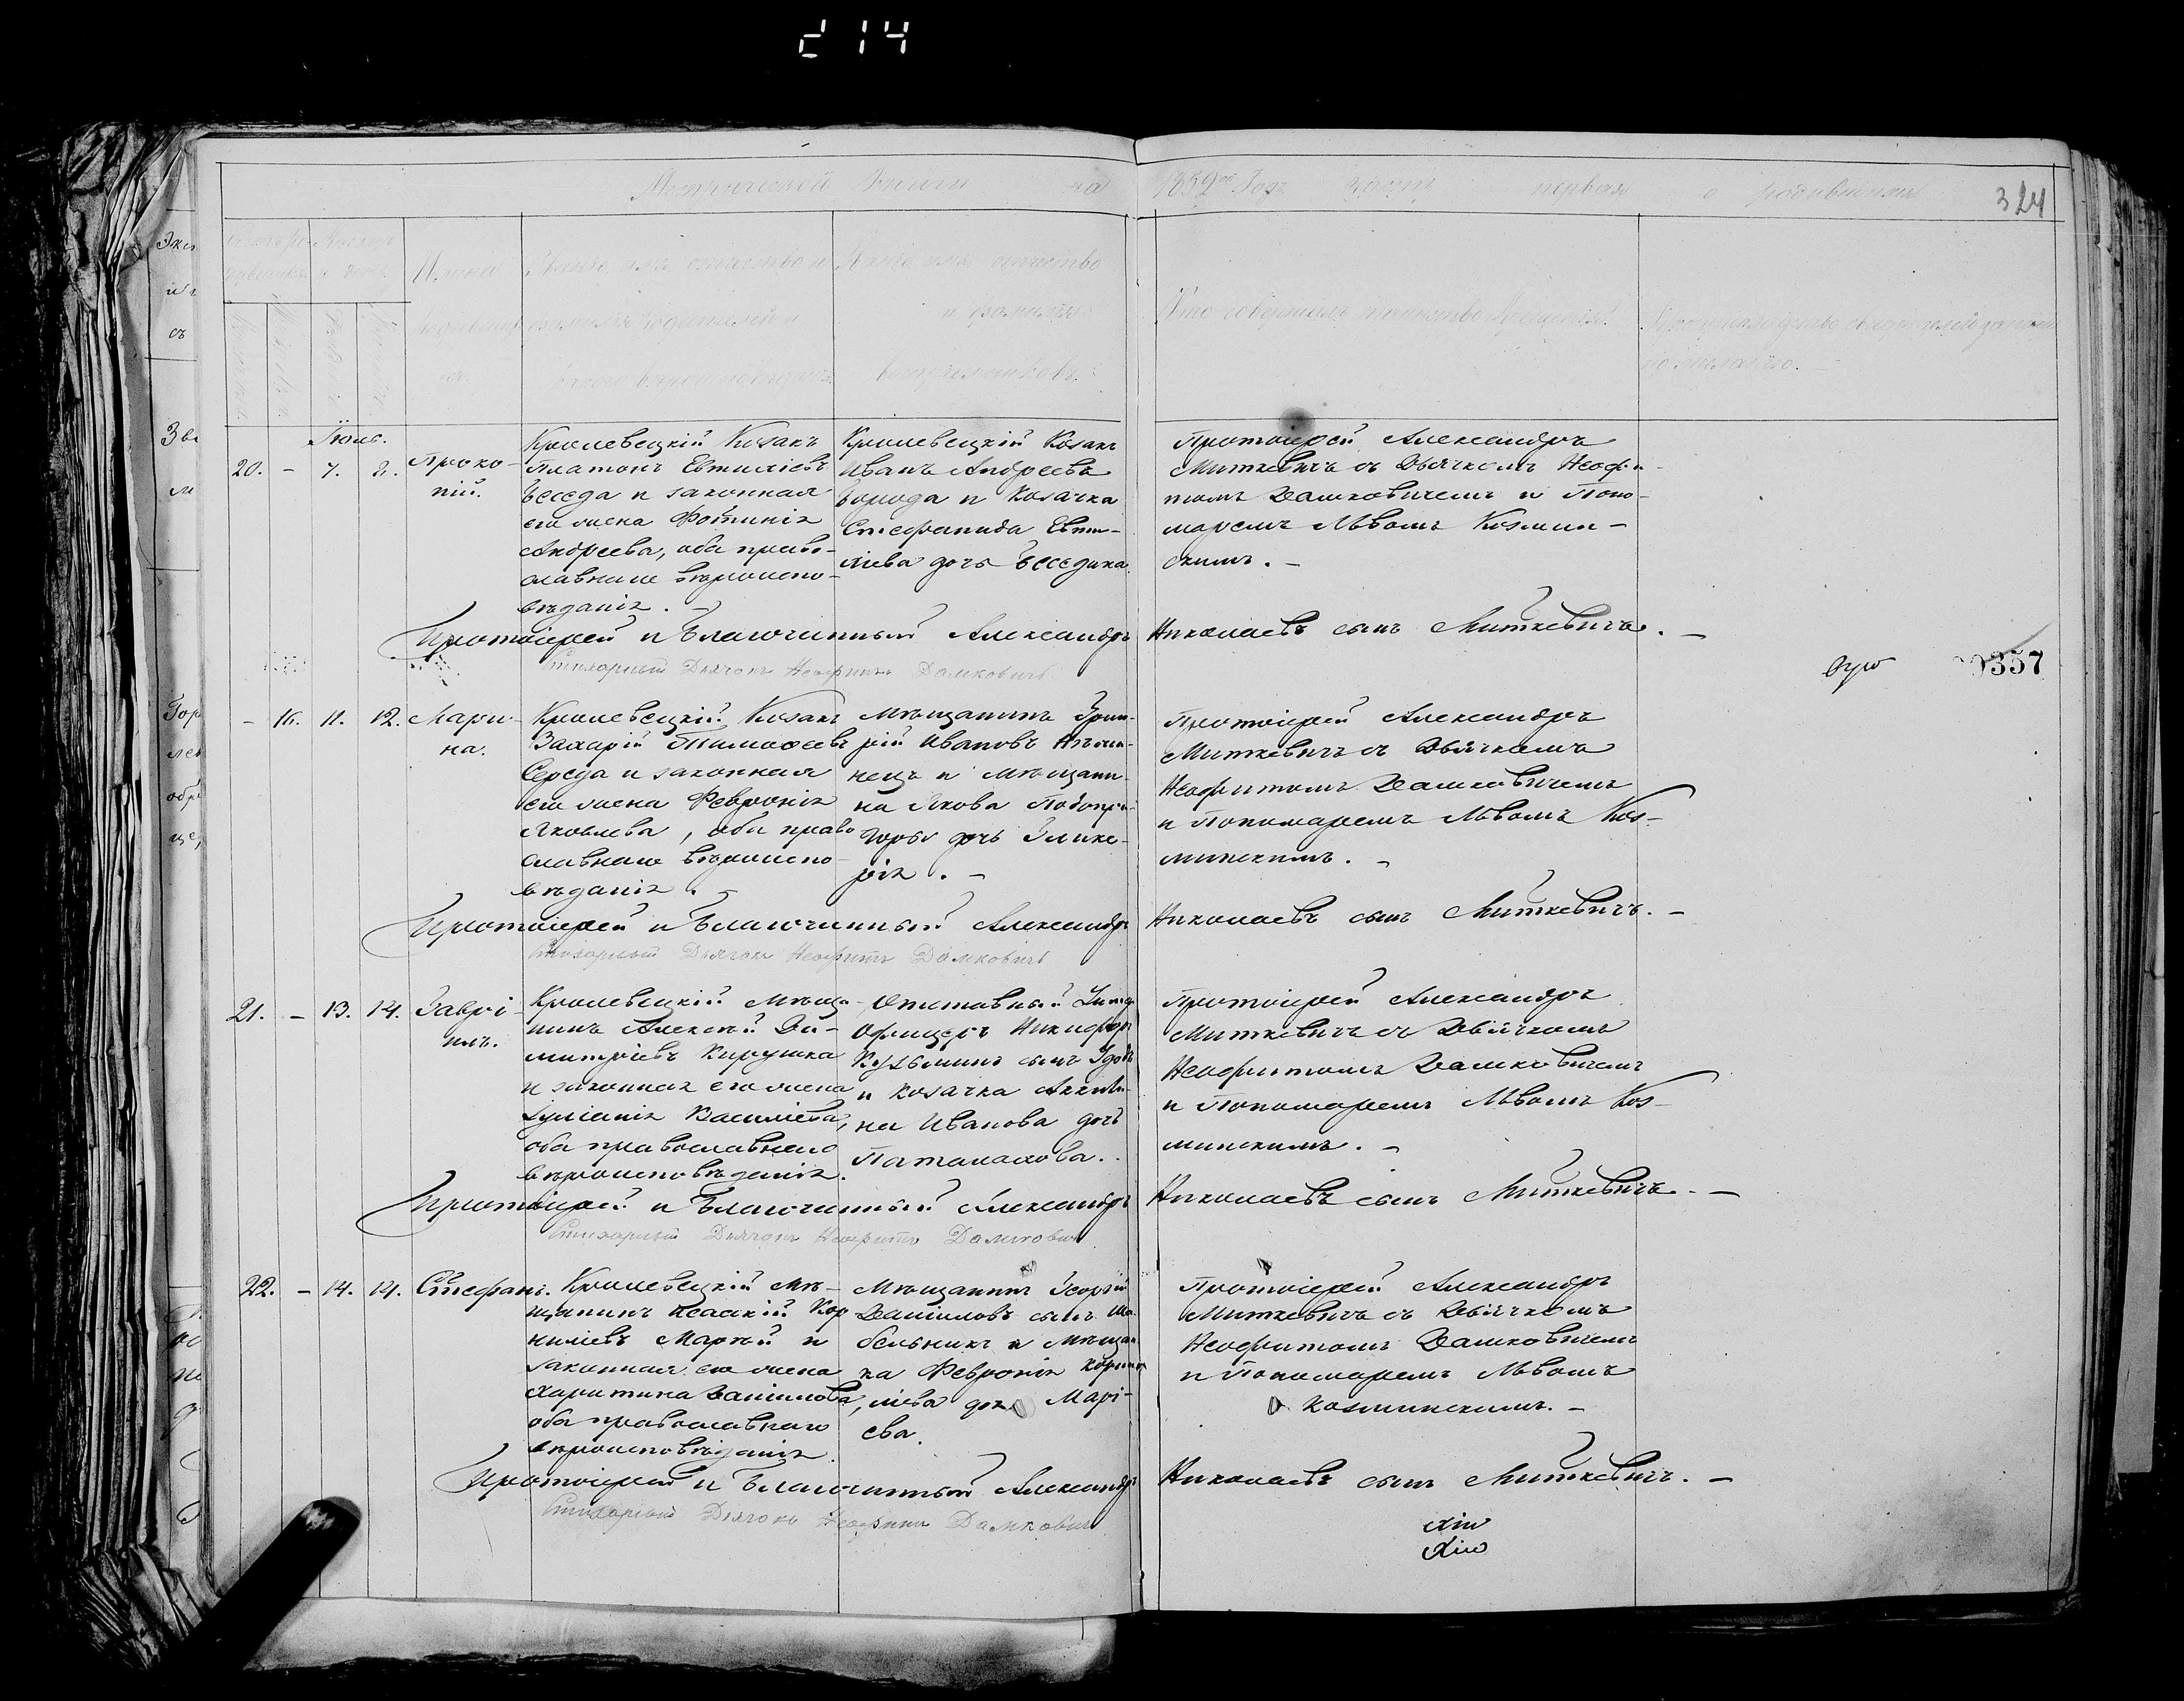 214
Метрической Книги на 1859й Годъ часть первая о родившихся
324
Имена
Званіе, имя, отчество и
Званіе имя, отчество
и фамилія
воспріемниковъ.
Кто совершалъ таинство Крещенія.
по желанію.
Іюль.
20. - 7. 8.
Проко-
пій.
Кролевецкій Козакъ
Платонъ Евтихіевъ
Беседа и законная
его жена Фотинія
Андреева, оба право-
славнаго вѣроиспо-
вѣданія. -
Кролевецкій Козакъ
Иванъ Андреевъ
Борода и Козачка
Стефанида Евти-
хіева дочь Беседина.
Протоіерей Александръ
Миткевичъ съ Дьячкомъ Неофи-
томъ Дашковичемъ и Поно-
маремъ Львомъ Козмин-
скимъ. -
Протоіерей и Благочинный Александръ Николаевъ сынъ Миткевичъ. -
Стихарный Дьячокъ Неофитъ Дашковичъ
357
- 16. 11. 12.
Мари-
на.
Кролевецкій Козакъ
Захарій Тимофеевъ
Середа и законная
его жена Февронія
Яковлева, оба право
славнаго вѣроиспо-
вѣданія.
Мѣщанинъ Григо-
рій Ивановъ Нѣжи-
нецъ и Мѣщани-
на Якова Подопри-
горы дочь Глике-
рія. -
Протоіерей Александръ
Миткевичъ съ Дьячкомъ
Неофитомъ Дашковичемъ
и Пономаремъ Львомъ Коз-
минскимъ. -
Протоіерей и Благочинный Александръ Николаевъ сынъ Миткевичъ. -
Стихарный Дьячокъ Неофитъ Дашковичъ
21. - 13. 14.
Гаврі-
илъ.
Кролевецкій Мѣща-
нинъ Алексѣй Ди-
митріевъ Кирушка
и законная его жена
Іуліанія Василіева,
оба православнаго
вѣроисповѣданія.
Отставный Унтер
Офицеръ Никифоръ
Кузьминъ сынъ
и Козачка Акили-
на Иванова дочь
Протоіерей Александръ
Миткевичъ съ Дьячкомъ
Неофитомъ Дашковичемъ
и Пономаремъ Львомъ Коз-
минскимъ. -
Протоіерей и Благочинный Александръ Николаевъ сынъ Миткевичъ. -
Стихарный Дьячокъ Неофитъ Дашковичъ
22. - 14. 19.
Стефанъ.
Кролевецкій Мѣ-
щанинъ Исаакій Кор
нилієвъ Марѣй и
законная его жена
Харитина Даніилова,
оба православнаго
вѣроисповѣданія.
Мѣщанинъ Георгій
Даніиловъ сынъ Ша-
бельникъ и Мѣщан
ка Февронія Корни
ліева дочь Марі-
ева.
Протоіерей Александръ
Миткевичъ съ Дьячкомъ
Неофитомъ Дашковичемъ
и Пономаремъ Львомъ
Козминскимъ. -
Протоіерей и Благочинный Александръ Николаевъ сынъ Миткевичъ. -
Стихарный Дьячокъ Неофитъ Дашковичъ